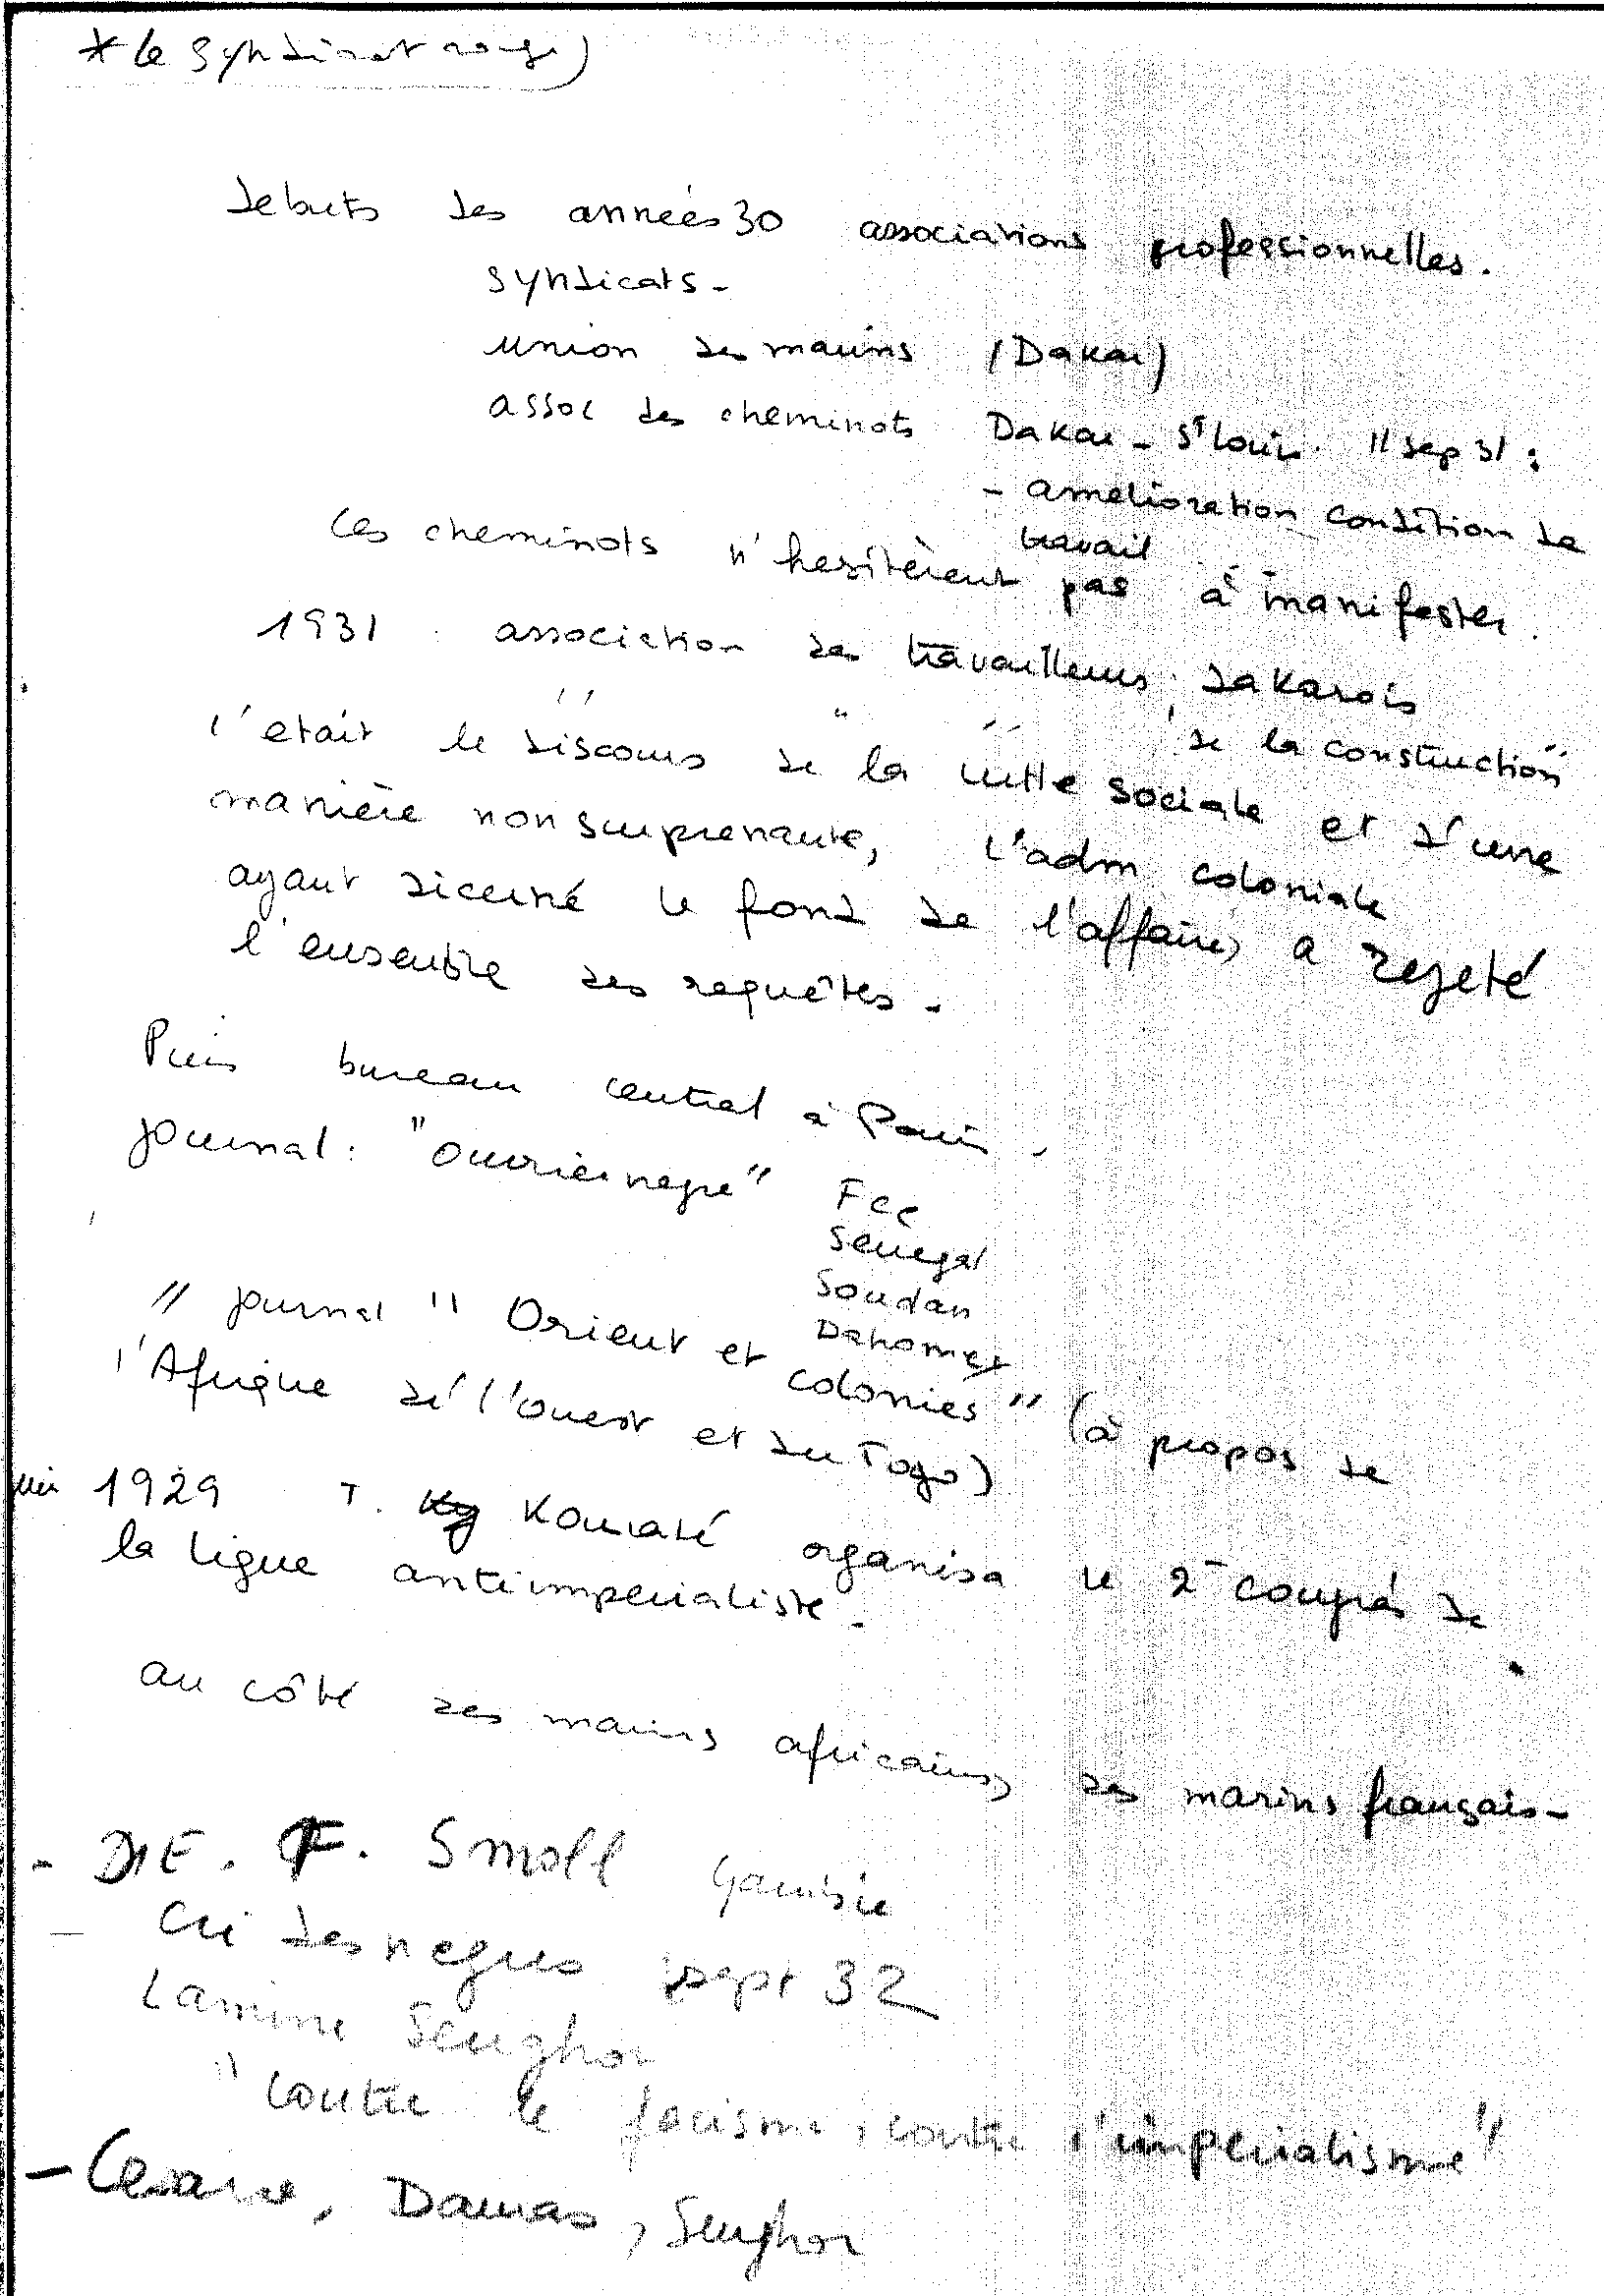 * le syndicat rouge)
debuts des années 30 associations professionnelles.
syndicats -
union des marins (Dakar)
assoc des cheminots Dakar - St Louis. 11 sep 31 :
- amelioration condition de
travail
Les cheminots n'hesitèrent pas à manifester.
1931 : association des travailleurs dakarois
" " " de la construction"
c'etait le discours de la lutte sociale et d'une
manière non surprenante, l'adm coloniale
ayant dicerné le fond de l'affaire, a rejeté
l'ensemble des requêtes -
Puis bureau central à Paris -
journal : "Ouvrier negre" Fce
Senegal
Soudan
Dahomey
// journal " Orient et colonies" (à propos de
l'Afrique de l'ouest et du Togo)
1929 T. Kouraté organisa le 2e congrés de
la ligue antiimperialiste -
au côté des marins africains, des marins français -
- E. F. Small Gambie
- Cri des negres sept 32
Lamine Senghor
"contre le facisme, contre l'imperialisme"
- Cesaire, Damas, Senghor